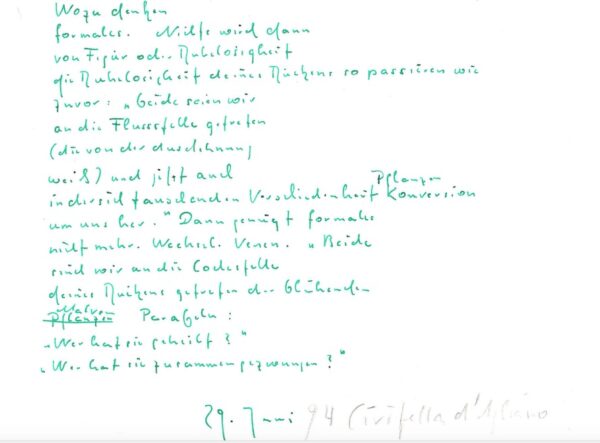 Wozu denken
formales. wird dann
von Figur oder Ruhelosigkeit
die Ruhelosigkeit deines Rückens so passieren wie
zuvor: „Beide seien wir
an die Flussstelle getreten
(die von der Ausdehnung
weiß) und jetzt auch
Pflanzen
in der sich tauschenden Verschiedenheit Konversion
um uns her." Dann genügt formales
nicht mehr. Wechsel. Venen. „Beide
sind wir an die
deines Rückens getreten der blühenden
Malven
Pflanzen Parabeln:
„Wer hat sie geheilt?"
„Wer hat sie zusammengezwungen?"
29. Juni 94 Civitella d'Agliano